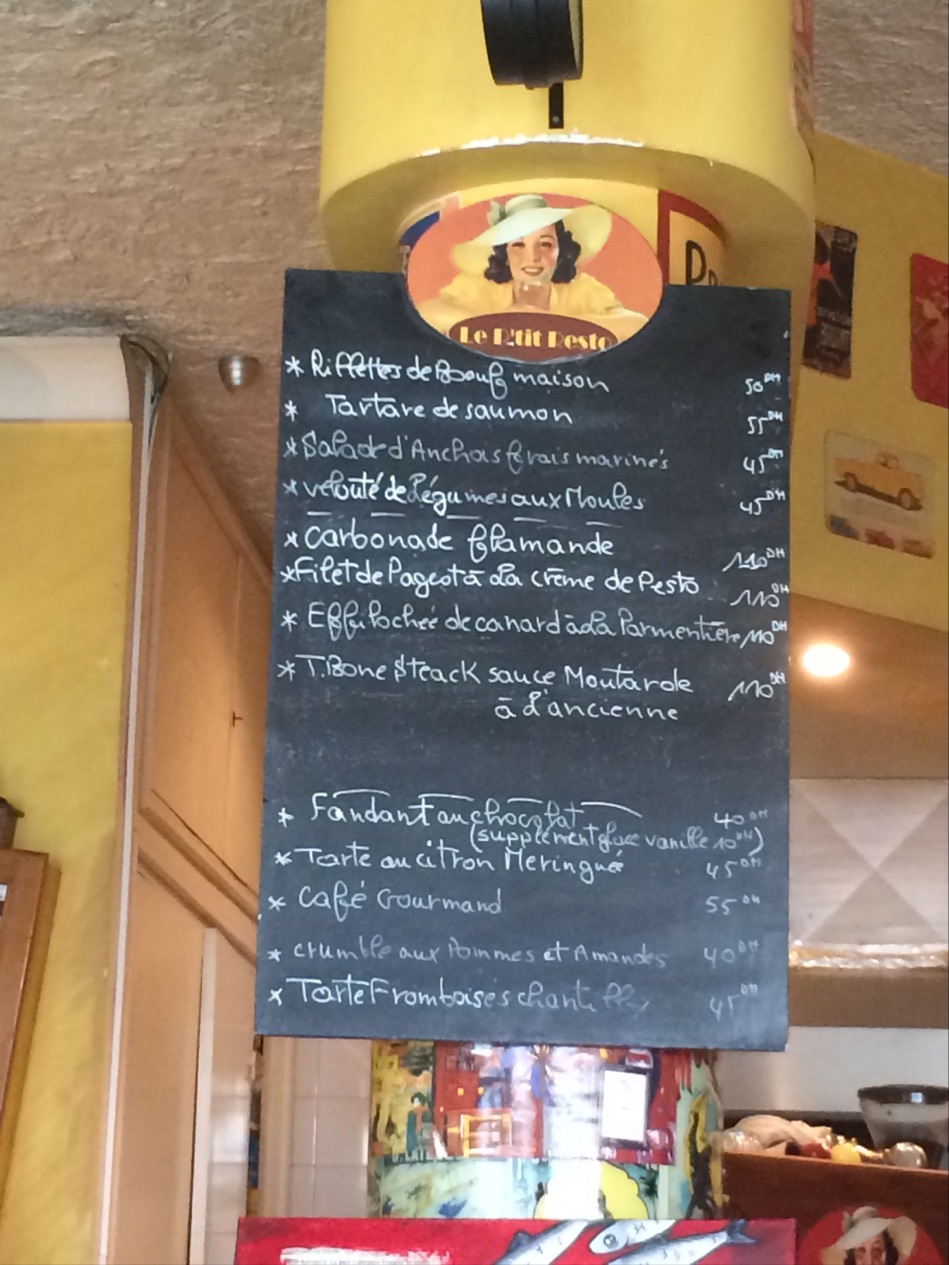 Le P'tit Resto
* Riffettes de Boeuf maison 50 DH
* Tartare de saumon 55 DH
* Salade d'Anchois frais marinés 45 DH
* velouté de Légumes aux Moules 45 DH
* carbonade flamande 110 DH
* Filet de Pageot à la crème de Pesto 110 DH
* Effilochée de canard à la Parmentière 110 DH
* T.Bone Steack sauce Moutarde 110 DH
à l'ancienne
* Fandant au chocolat 40 DH
(supplément glace vanille 10 DH)
* Tarte au citron Meringué 45 DH
* café Gourmand 55 DH
* crumble aux Pommes et Amandes 40 DH
* Tarte Framboises chantilly 45 DH